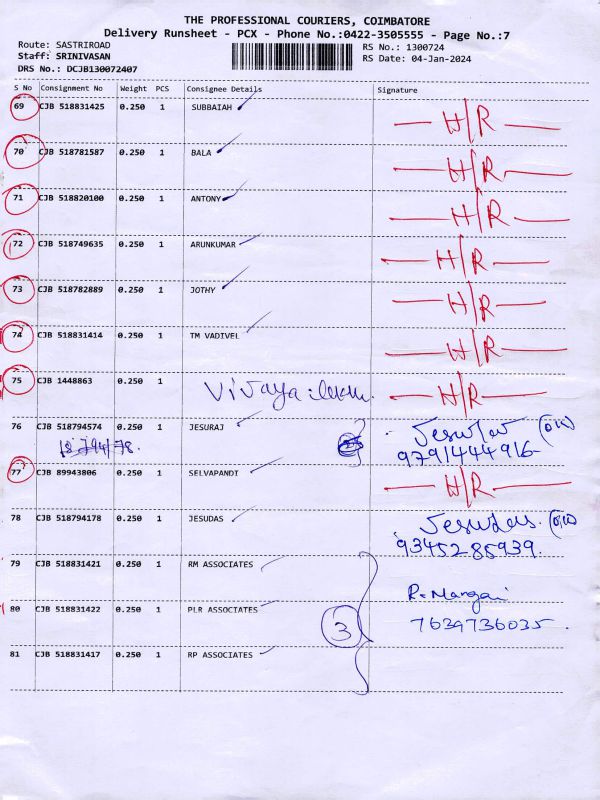 THE PROFESSIONAL COURIERS, COIMBATORE
Delivery Runsheet - PCX - Phone No.:0422-3505555 - Page No.:7
Route: SASTRIROAD RS No.: 1300724
Staff: SRINIVASAN RS Date: 04-Jan-2024
DRS No.: DCJB130072407
S No Consignment No Weight PCS Consignee Details Signature
69 CJB 518831425 0.250 1 SUBBAIAH H/R
70 CJB 518781587 0.250 1 BALA H/R
71 CJB 518820100 0.250 1 ANTONY H/R
72 CJB 518749635 0.250 1 ARUNKUMAR H/R
73 CJB 518782889 0.250 1 JOTHY H/R
74 CJB 518831414 0.250 1 TM VADIVEL H/R
75 CJB 1448863 0.250 1 H/R
76 CJB 518794574 0.250 1 JESURAJ
9791444916
77 CJB 89943806 0.250 1 SELVAPANDI H/R
78 CJB 518794178 0.250 1 JESUDAS Jesudas.
9345285939.
79 CJB 518831421 0.250 1 RM ASSOCIATES
R. Mangai
80 CJB 518831422 0.250 1 PLR ASSOCIATES 3 7639736035.
81 CJB 518831417 0.250 1 RP ASSOCIATES